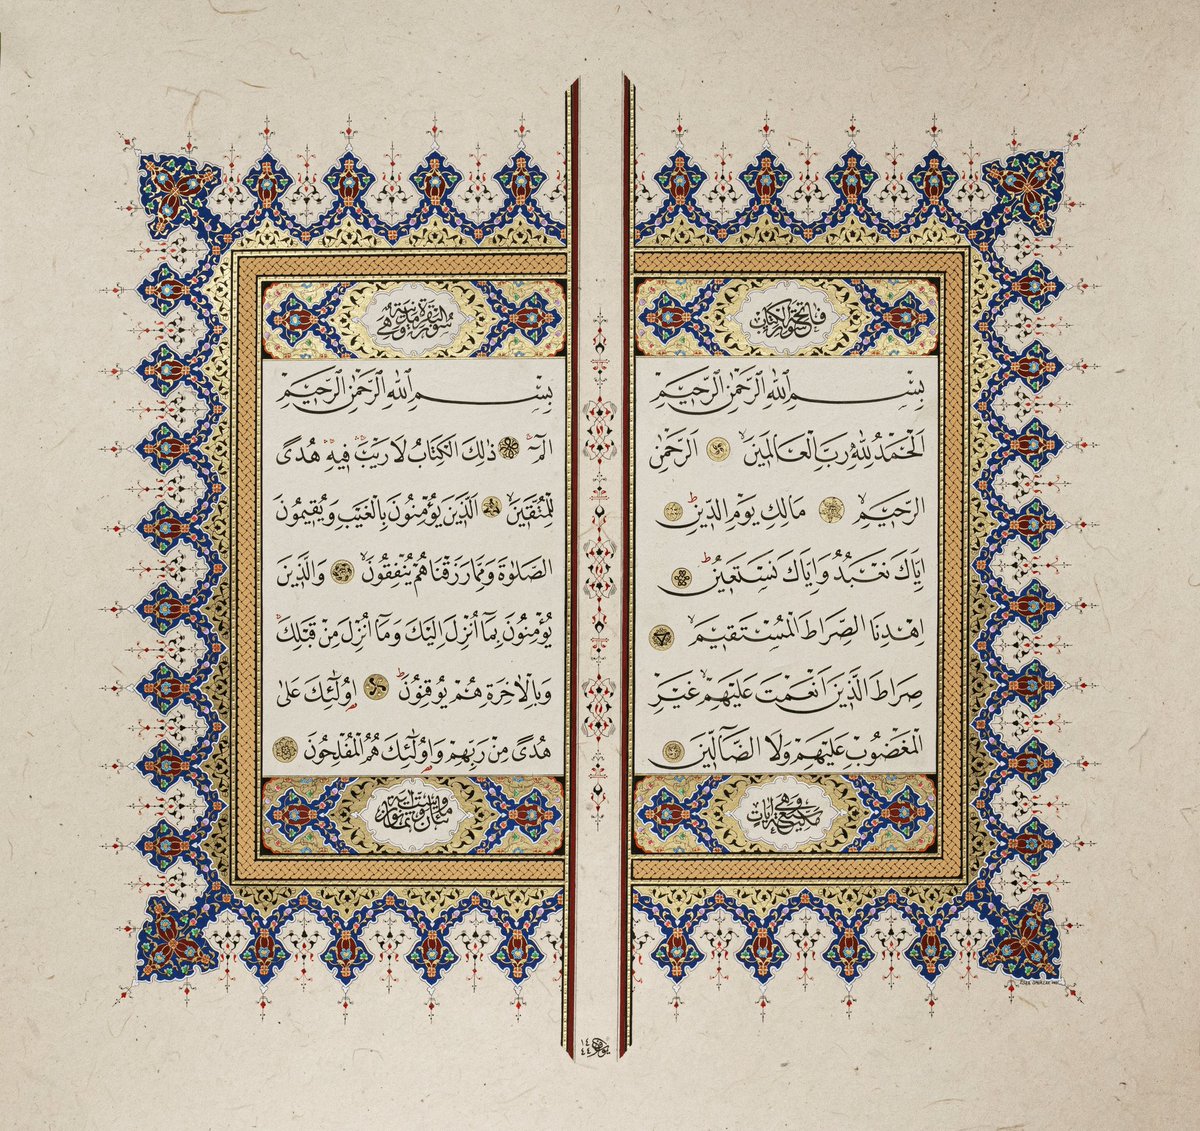 فاتحة الكتاب
بِسْمِ اللّٰهِ الرَّحْمٰنِ الرَّحِيمِ
اَلْحَمْدُ لِلّٰهِ رَبِّ الْعَالَمِينَ اَلرَّحْمٰنِ
الرَّحِيمِ مَالِكِ يَوْمِ الدِّينِ
اِيَّاكَ نَعْبُدُ وَاِيَّاكَ نَسْتَعِينُ
اِهْدِنَا الصِّرَاطَ الْمُسْتَقِيمَ
صِرَاطَ الَّذِينَ اَنْعَمْتَ عَلَيْهِمْ غَيْرِ
الْمَغْضُوبِ عَلَيْهِمْ وَلَا الضَّآلِّينَ
وهي سبع آيات مكية
سورة البقرة مدنية وهي
بِسْمِ اللّٰهِ الرَّحْمٰنِ الرَّحِيمِ
الٓمٓ ذٰلِكَ الْكِتَابُ لَا رَيْبَ فِيهِ هُدًى
لِلْمُتَّقِينَ اَلَّذِينَ يُؤْمِنُونَ بِالْغَيْبِ وَيُقِيمُونَ
الصَّلٰوةَ وَمِمَّا رَزَقْنَاهُمْ يُنْفِقُونَ وَالَّذِينَ
يُؤْمِنُونَ بِمَآ اُنْزِلَ اِلَيْكَ وَمَآ اُنْزِلَ مِنْ قَبْلِكَ
وَبِالْاٰخِرَةِ هُمْ يُوقِنُونَ اُولٰٓئِكَ عَلٰى
هُدًى مِنْ رَبِّهِمْ وَاُولٰٓئِكَ هُمُ الْمُفْلِحُونَ
مائتان وست وثمانون آية
١٤٤٤